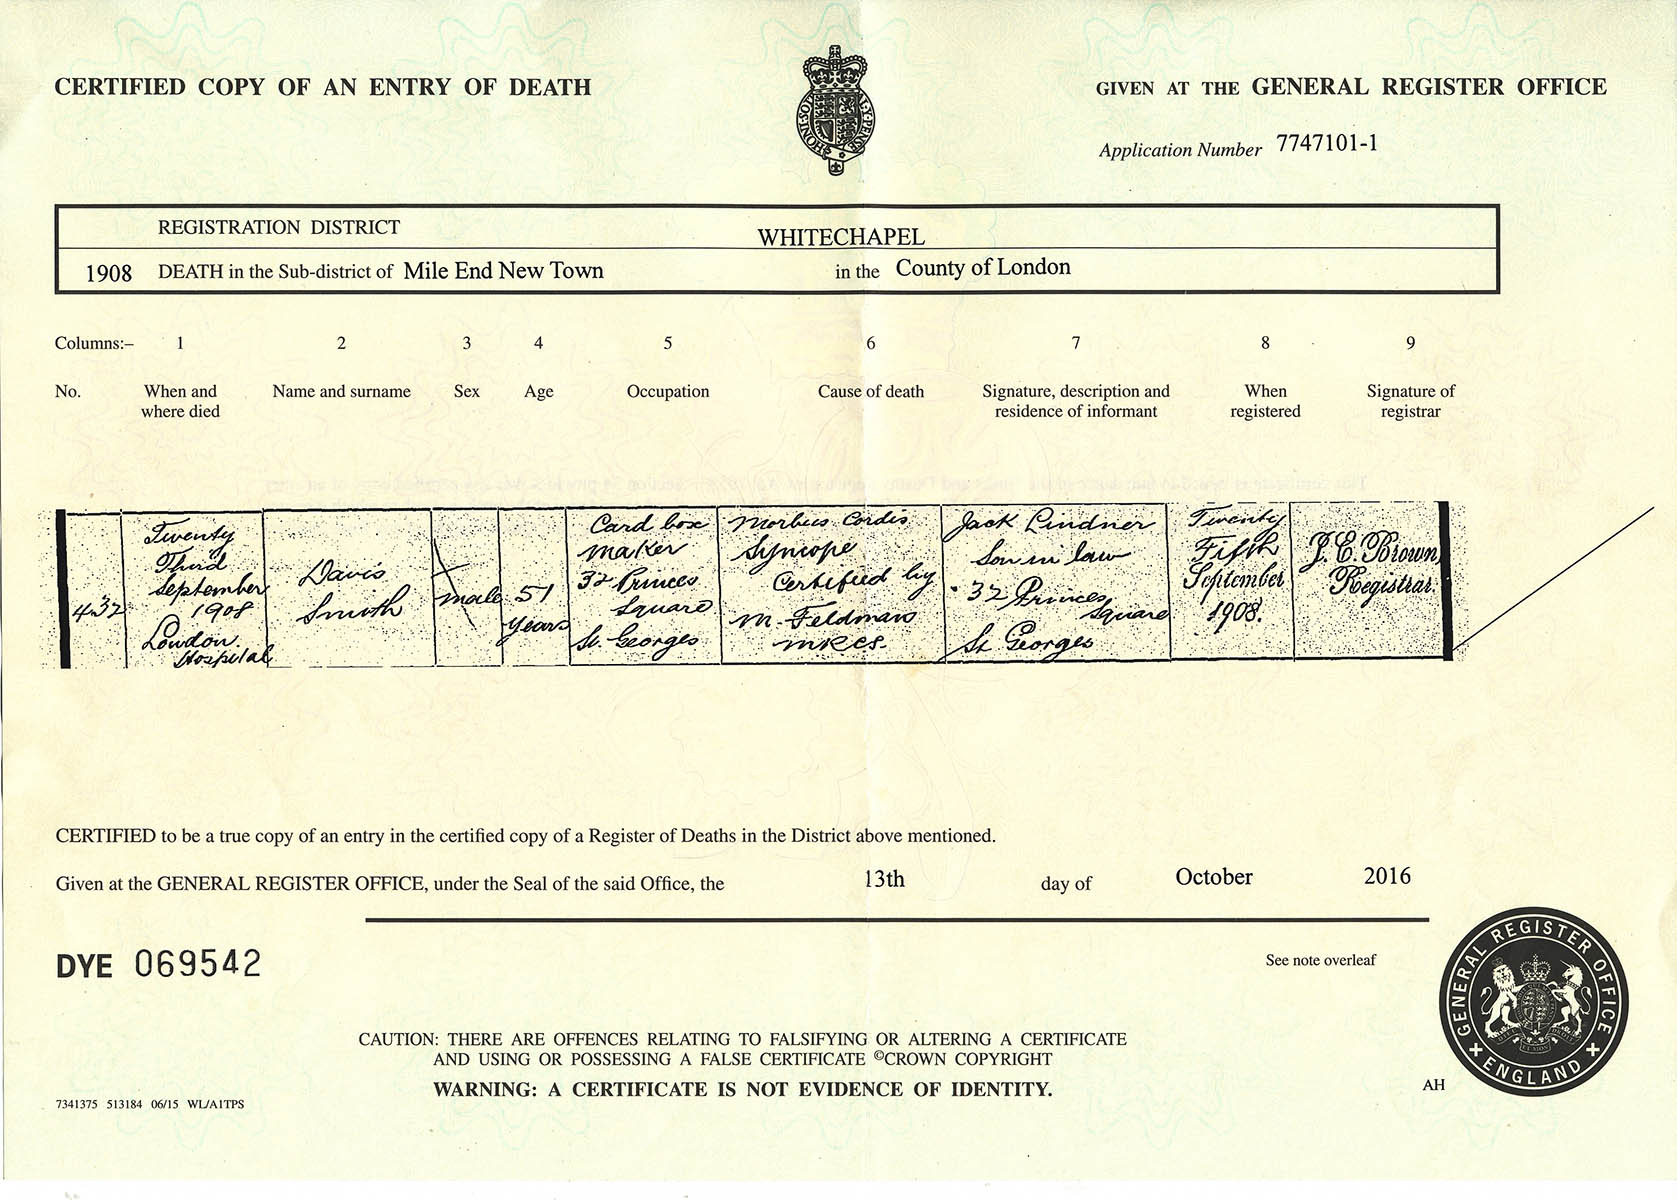 CERTIFIED COPY OF AN ENTRY OF DEATH
GIVEN AT THE GENERAL REGISTER OFFICE
Application Number 7747101-1
REGISTRATION DISTRICT WHITECHAPEL
1908 DEATH in the Sub-district of Mile End New Town in the County of London
Columns:– 1 2 3 4 5 6 7 8 9
No. When and where died Name and surname Sex Age Occupation Cause of death Signature, description and residence of informant When registered Signature of registrar
432
Twenty
Third
September
1908
London
Hospital
Davis
Smith
male
51
years
Card box
maker
32 Princes
Square
St. Georges
Morbus Cordis
Syncope
Certified by
M. Feldman
MRCS.
Jack Lindner
Son in law
32 Princes
Square
St Georges
Twenty
Fifth
September
1908.
J. E. Brown
Registrar.
CERTIFIED to be a true copy of an entry in the certified copy of a Register of Deaths in the District above mentioned.
Given at the GENERAL REGISTER OFFICE, under the Seal of the said Office, the 13th day of October 2016
DYE 069542
See note overleaf
GENERAL REGISTER OFFICE
ENGLAND
CAUTION: THERE ARE OFFENCES RELATING TO FALSIFYING OR ALTERING A CERTIFICATE
AND USING OR POSSESSING A FALSE CERTIFICATE ©CROWN COPYRIGHT
WARNING: A CERTIFICATE IS NOT EVIDENCE OF IDENTITY.
AH
7341375 513184 06/15 WL/A1TPS